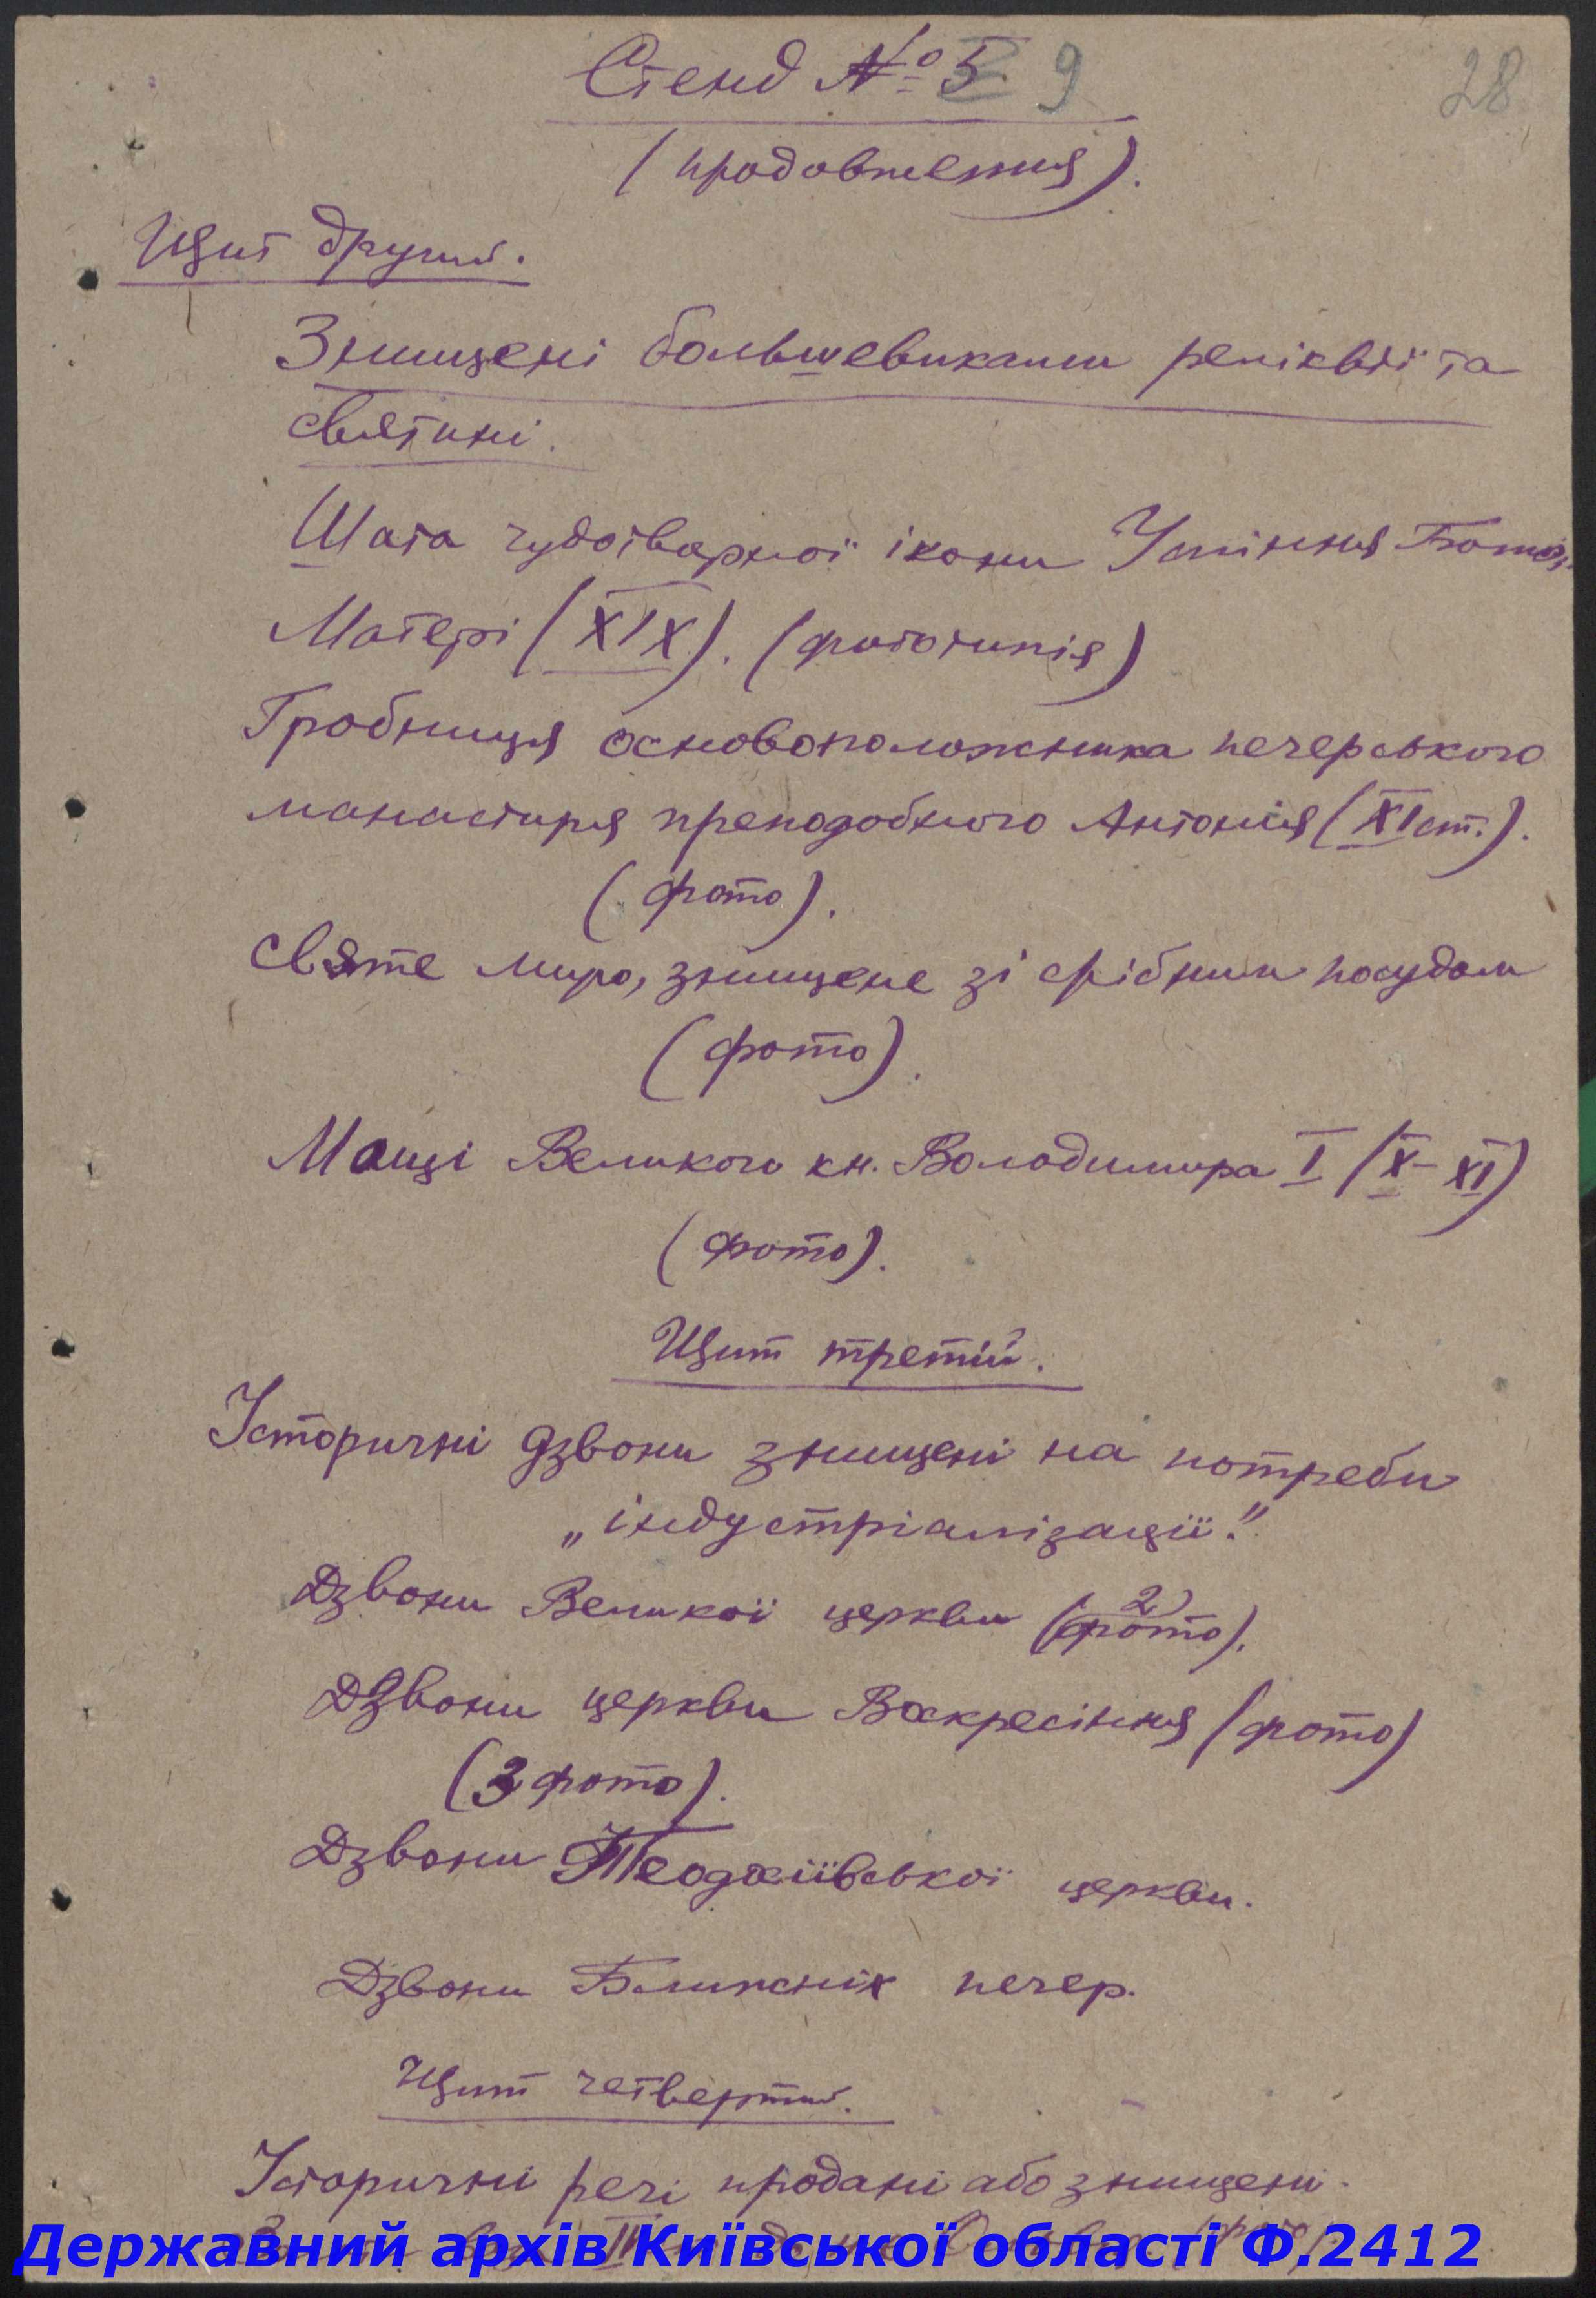 Стенд № 5 9
28
(продовження).
Щит другий.
Знищені большевиками реліквії та
святині.
Шата чудотворної ікони Успіння Божої
Матері (XIX). (фототипія)
Гробниця основоположника печерського
манастиря преподобного Антонія (XI ст.).
(фото).
Святе миро, знищене зі срібним посудом
(фото).
Мощі Великого кн. Володимира I (X-XI)
(фото).
Щит третій.
Історичні дзвони знищені на потреби
„індустріалізації".
Дзвони Великої церкви (2 фото).
Дзвони церкви Воскресіння (фото)
(3 фото).
Дзвони Теодосіївської церкви.
Дзвони Ближніх печер.
Щит четвертий.
Історичні речі продані або знищені.
Державний архів Київської області Ф.2412